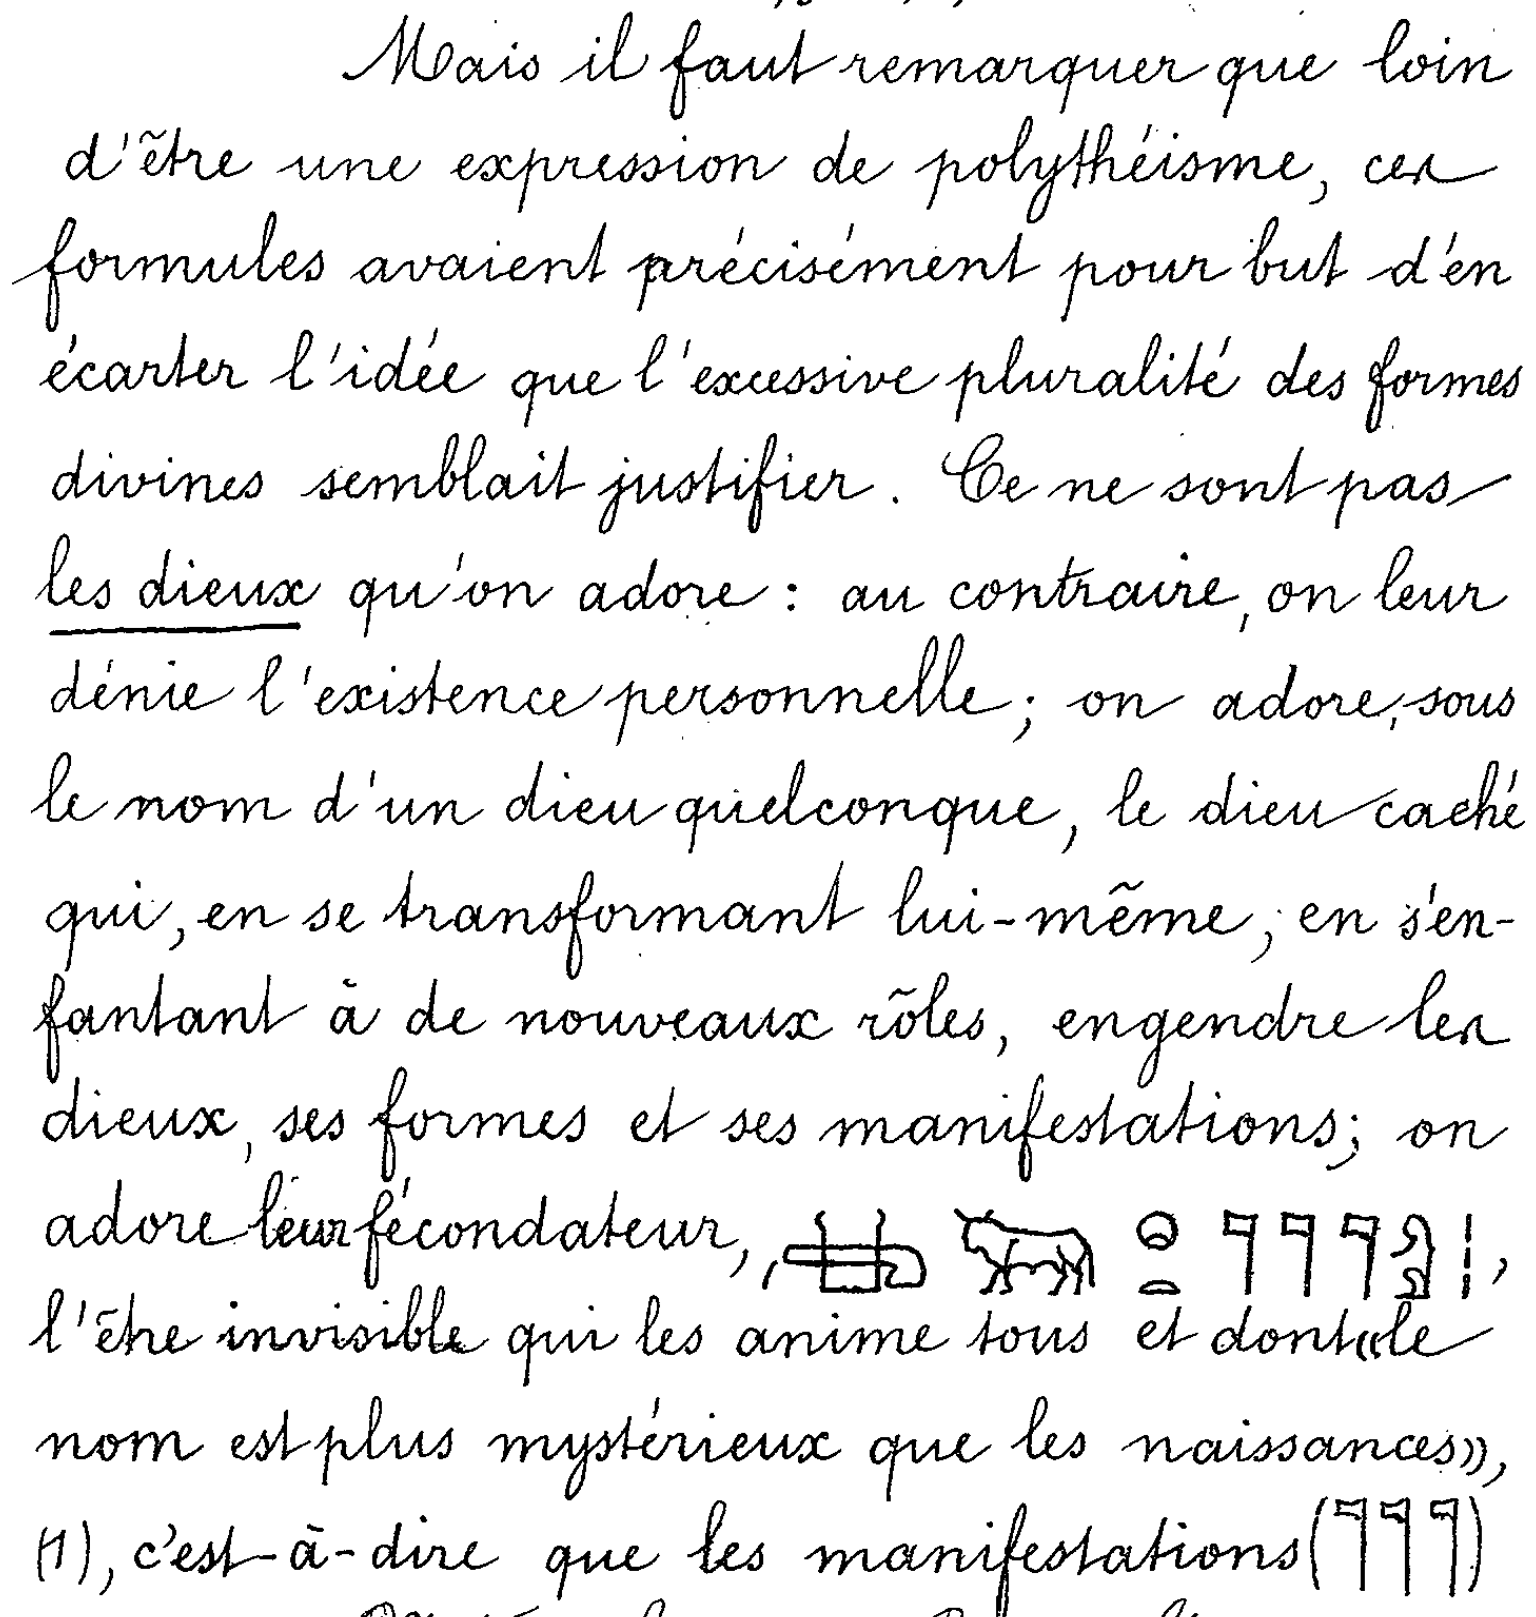 Mais il faut remarquer que loin
d'être une expression de polythéisme, ces
formules avaient précisément pour but d'en
écarter l'idée que l'excessive pluralité des formes
divines semblait justifier. Ce ne sont pas
les dieux qu'on adore : au contraire, on leur
dénie l'existence personnelle ; on adore, sous
le nom d'un dieu quelconque, le dieu caché
qui, en se transformant lui-même, en s'en-
fantant à de nouveaux rôles, engendre les
dieux, ses formes et ses manifestations ; on
adore leur fécondateur, 𓃒 𓊹𓊹𓊹,
l'être invisible qui les anime tous et dont «le
nom est plus mystérieux que les naissances»,
(1), c'est-à-dire que les manifestations (𓊹𓊹𓊹)